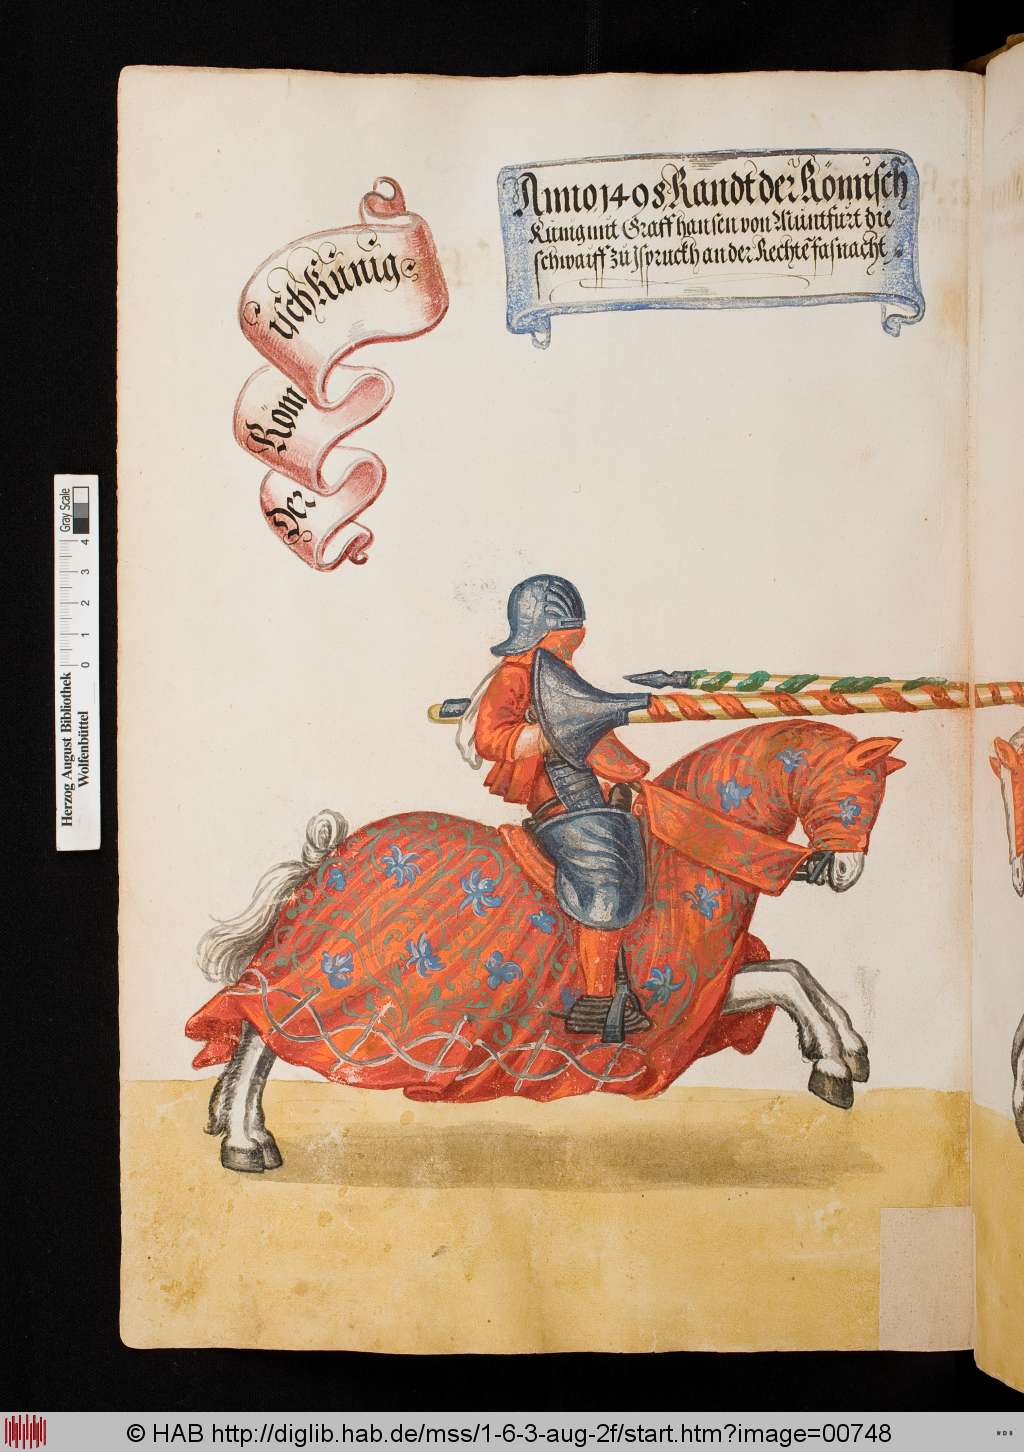 Anno 1498 Randt der Römisch
Künig mit Graff hansen von Müntfurt die
schwaiff zü Jspruckh an der Rechte fasnacht.
Der Röm
ischKünig.
Herzog August Bibliothek
Wolfenbüttel
0 1 2 3 4
Gray Scale
© HAB http://diglib.hab.de/mss/1-6-3-aug-2f/start.htm?image=00748
WDB